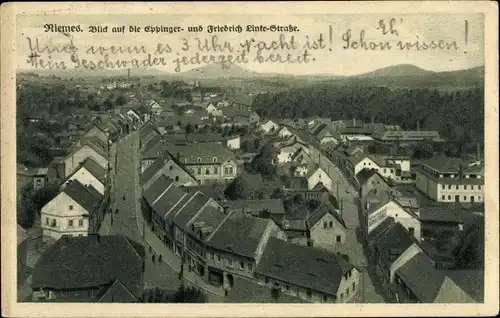 Niemes. Blick auf die Eppinger- und Friedrich Linke-Straße.
Und wenn es 3 Uhr Nacht ist! Schon wissen!
Ein Geschwader jederzeit bereit.